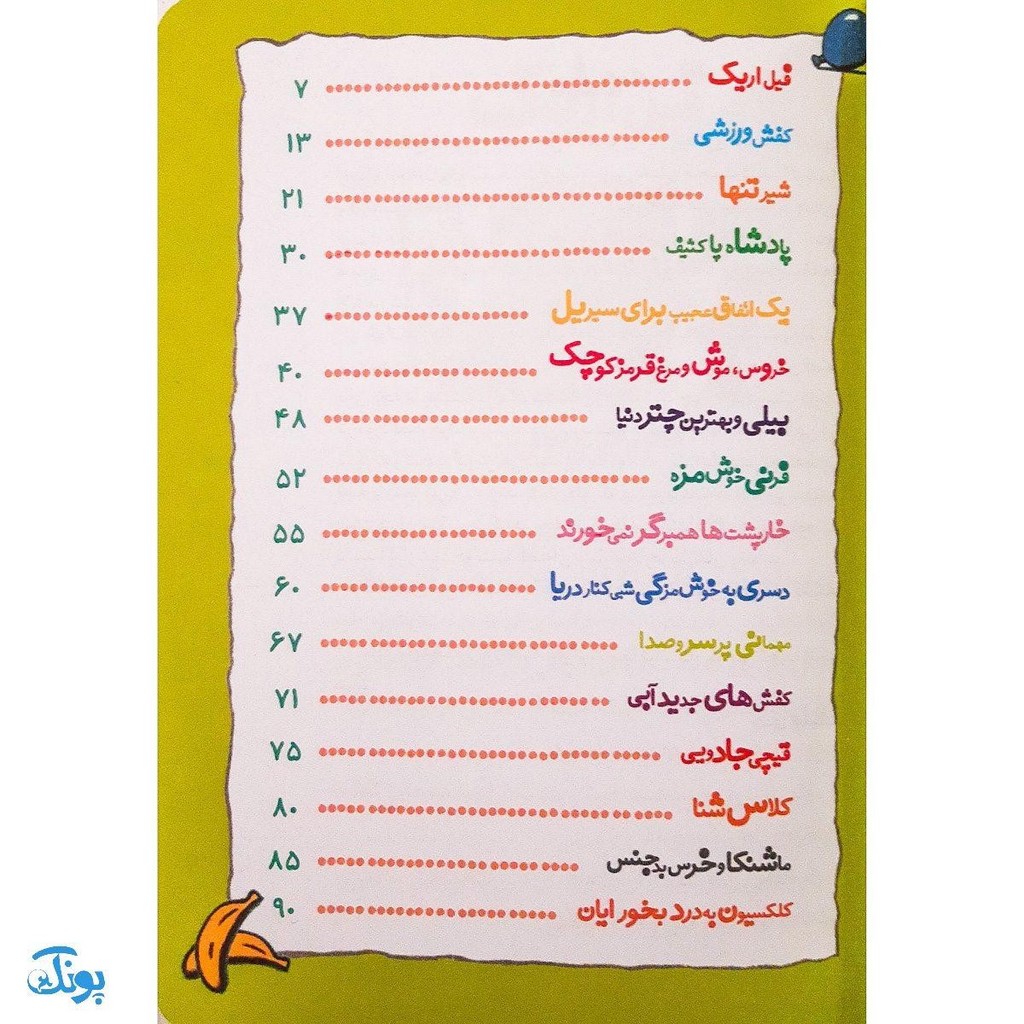 فیل اریک ........ ۷
کفش ورزشی ........ ۱۳
شیر تنها ........ ۲۱
پادشاه پا کثیف ........ ۳۰
یک اتفاق عجیب برای سیریل ........ ۳۷
خروس، موش و مرغ قرمز کوچک ........ ۴۰
بیلی و بهترین چتر دنیا ........ ۴۸
فرنی خوش مزه ........ ۵۲
خارپشت ها همبرگر نمی خورند ........ ۵۵
دسری به خوش مزگی شبی کنار دریا ........ ۶۰
مهمانی پر سر و صدا ........ ۶۷
کفش های جدید آبی ........ ۷۱
قیچی جادویی ........ ۷۵
کلاس شنا ........ ۸۰
ماشنکا و خرس بدجنس ........ ۸۵
کلکسیون به درد بخور ایان ........ ۹۰
پونک